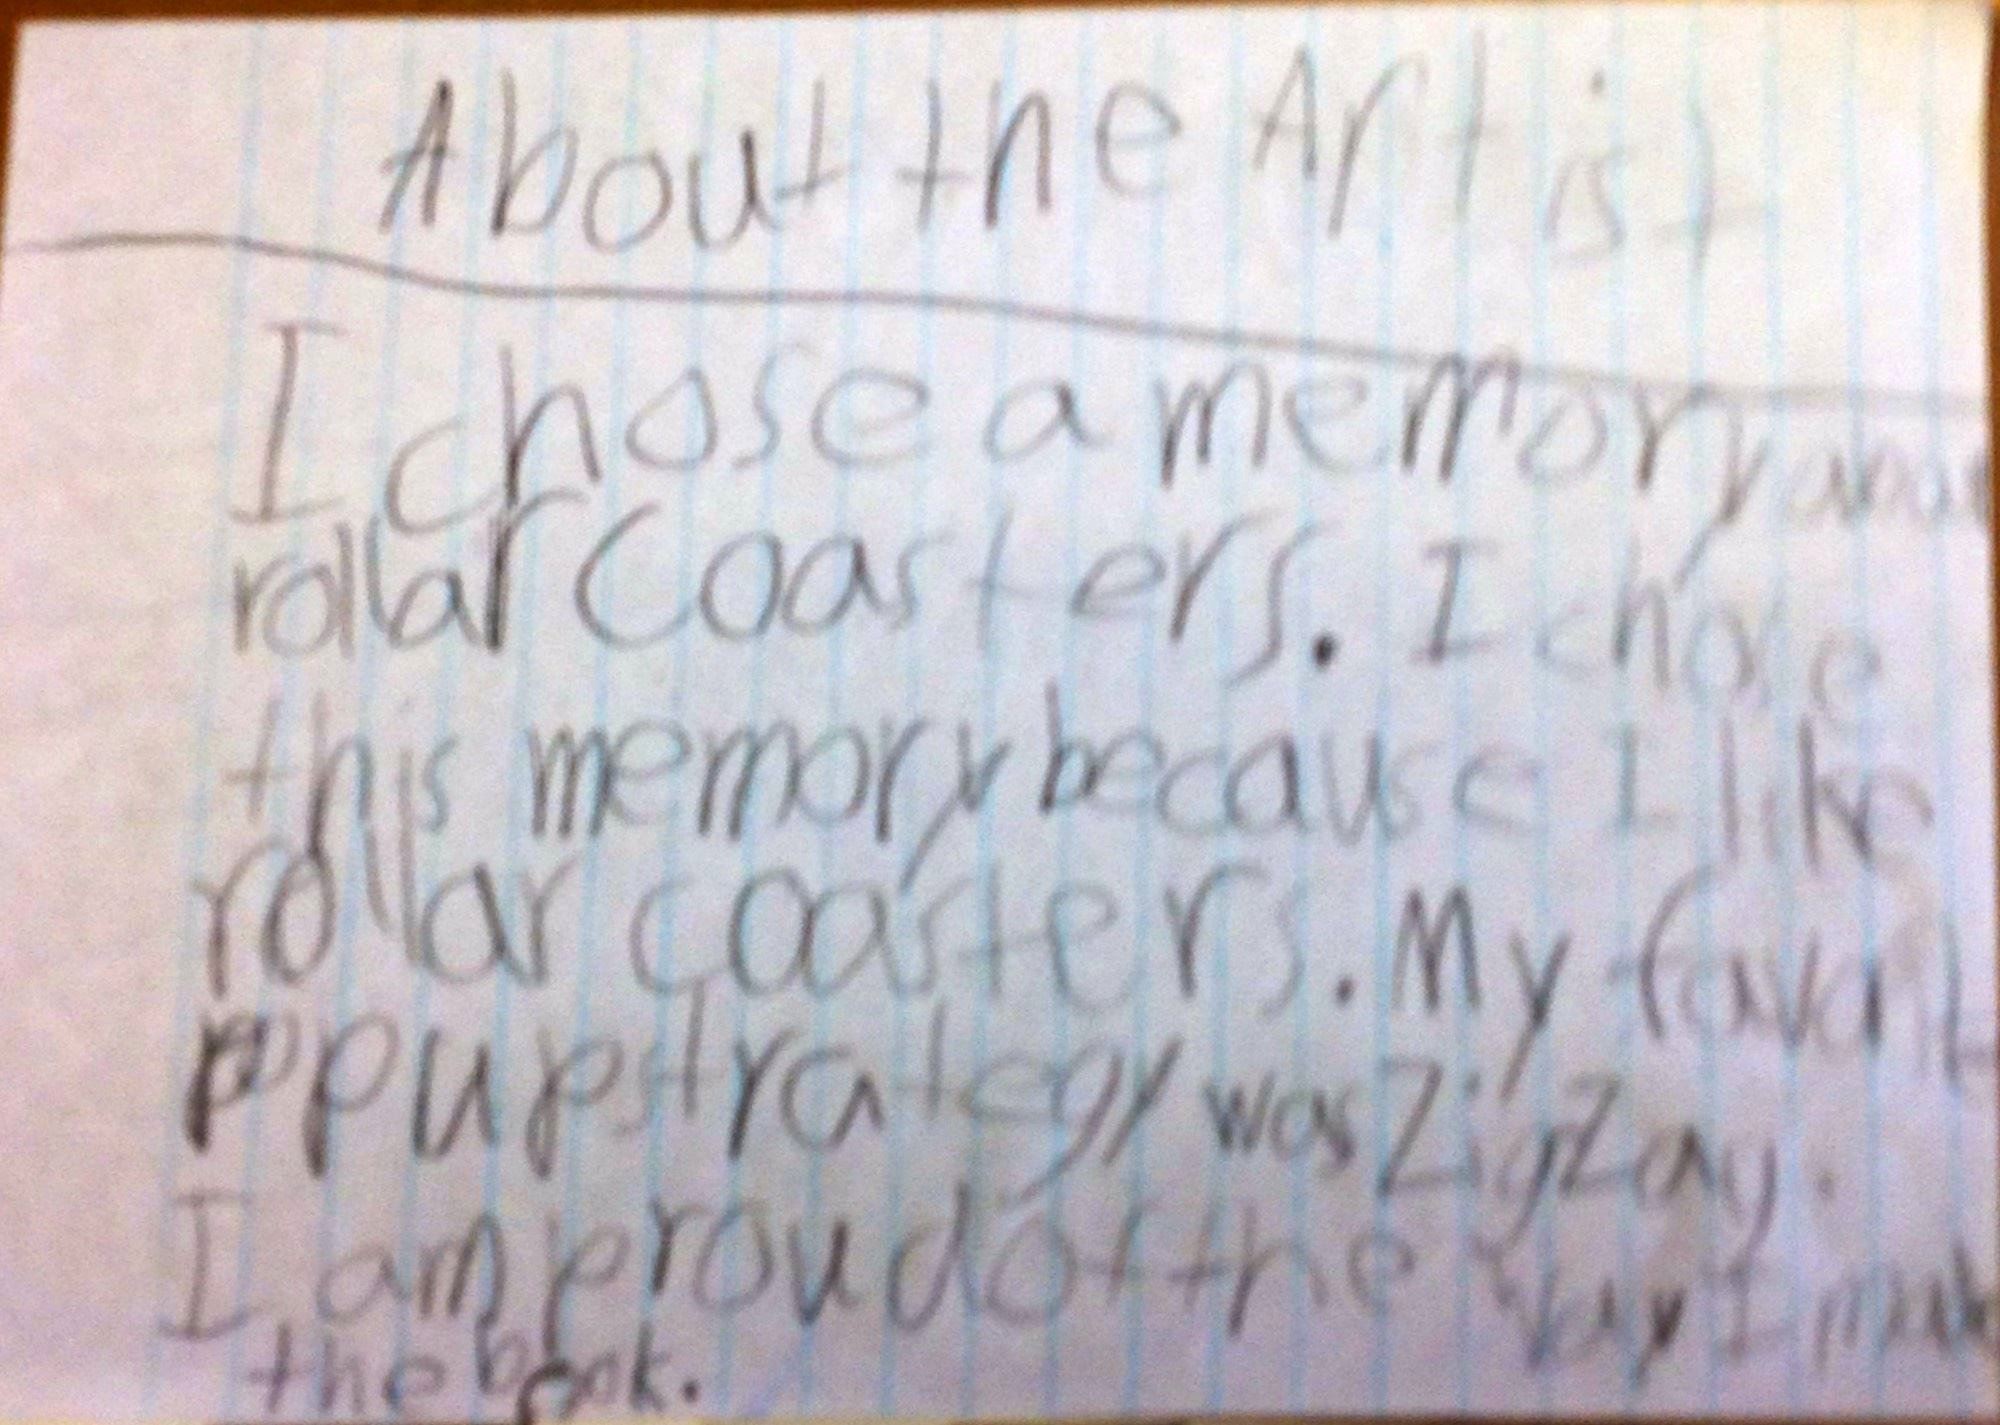 About the Artist
I chose a memory about
rollar coasters. I chose
this memory because I like
rollar coasters. My favorit
popup strategy was ZigZag.
I am proud of the way I made
the book.